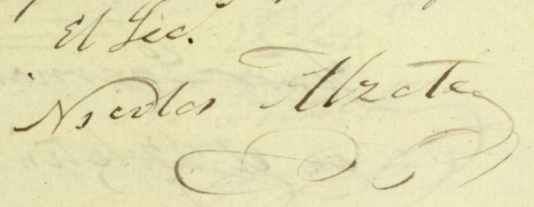 El Lic.
Nicolas Alzate